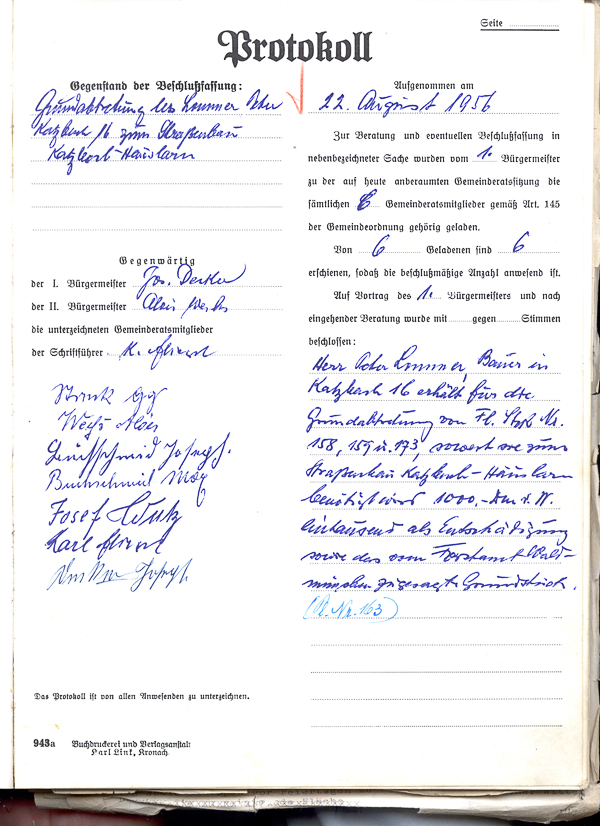 Seite
Protokoll
Gegenstand der Beschlußfassung:
Grundabtretung des Lommer Peter
Katzbach 16 zum Straßenbau
Katzbach-Häuslarn
Gegenwärtig
der I. Bürgermeister Jos.
der II. Bürgermeister Alois
die unterzeichneten Gemeinderatsmitglieder
der Schriftführer K.
Alois
Josef
Max
Josef
Karl
Josef
Das Protokoll ist von allen Anwesenden zu unterzeichnen.
943a Buchdruckerei und Verlagsanstalt
Karl Link, Kronach.
Aufgenommen am
22. August 1956
Zur Beratung und eventuellen Beschlußfassung in
nebenbezeichneter Sache wurden vom 1. Bürgermeister
zu der auf heute anberaumten Gemeinderatssitzung die
sämtlichen 6 Gemeinderatsmitglieder gemäß Art. 145
der Gemeindeordnung gehörig geladen.
Von 6 Geladenen sind 6
erschienen, sodaß die beschlußmäßige Anzahl anwesend ist.
Auf Vortrag des 1. Bürgermeisters und nach
eingehender Beratung wurde mit gegen Stimmen
beschlossen:
Herr Peter Lommer, Bauer in
Katzbach 16 erhält für die
Grundabtretung von Fl. Stck Nr.
158, 159 u. 173, soweit sie zum
Straßenbau Katzbach-Häuslarn
benötigt wird 1000.- DM i. W.
eintausend als Entschädigung
sowie das vom Forstamt Wald-
münchen zugesagte Grundstück.
Nr. 163)